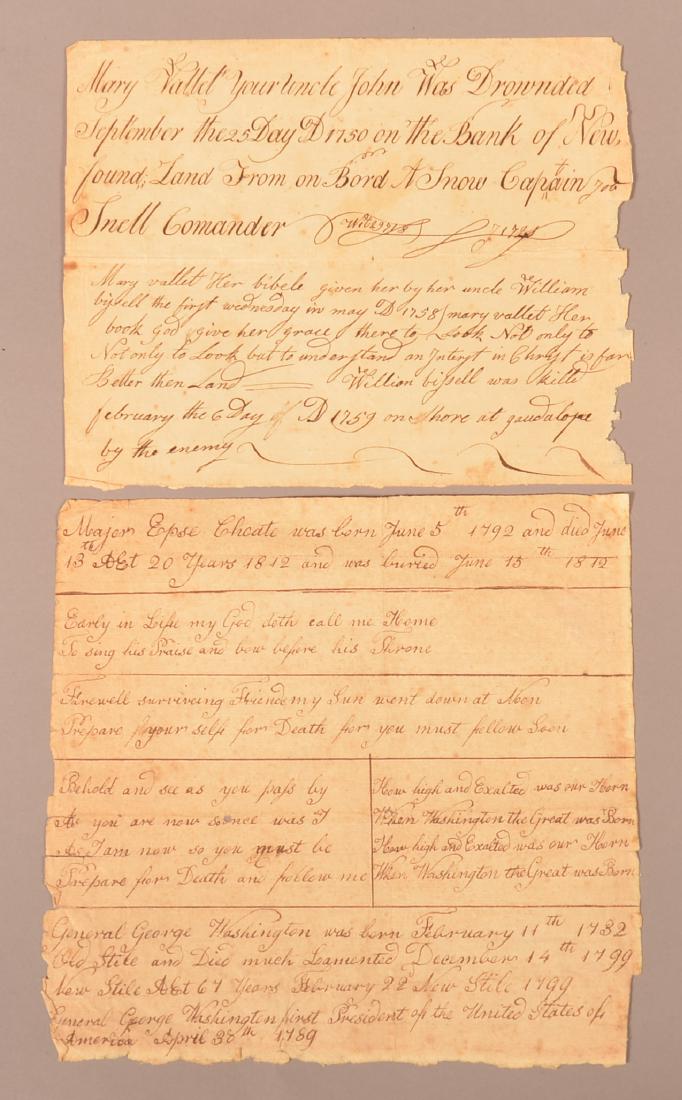 Mary Vallet Your Uncle John Was Drownded
September the 25 Day D 1750 on the Bank of New
found; Land From on Bord A Snow Captain
Snell Comander
Mary vallet Her bibele given her by her uncle William
bissell the first wednesday in may D 1758 / mary vallet Her
book god give her grace there to Look Not only to
Not only to Look but to understand an Intrest in Christ is far
Better then Land Willion bissell was killd
february the 6 Day of D 1759 on shore at gaudalope
by the enemy
Major Epse Choate was born June 5th 1792 and died June
13th AEt 20 Years 1812 and was buried June 15th 1812
Early in Life my God doth call me Home
To sing his Praise and bow before his Throne
Farewell surviveing Friends my Sun went down at Noon
Prepare your self for Death for you must follow Soon
Behold and see as you pass by
As you are now so once was I
As I am now so you must be
Prepare for Death and follow me
How high and Exalted was our Horn
When Washington the Great was Born
How high and Exalted was our Horn
When Washington the Great was Born
General George Washington was born February 11th 1732
Old Stile and Died much Leamented December 14th 1799
New Stile AEt 67 Years February 22 New Stile 1799
General George Washington first President of the United States of
America April 30th 1789